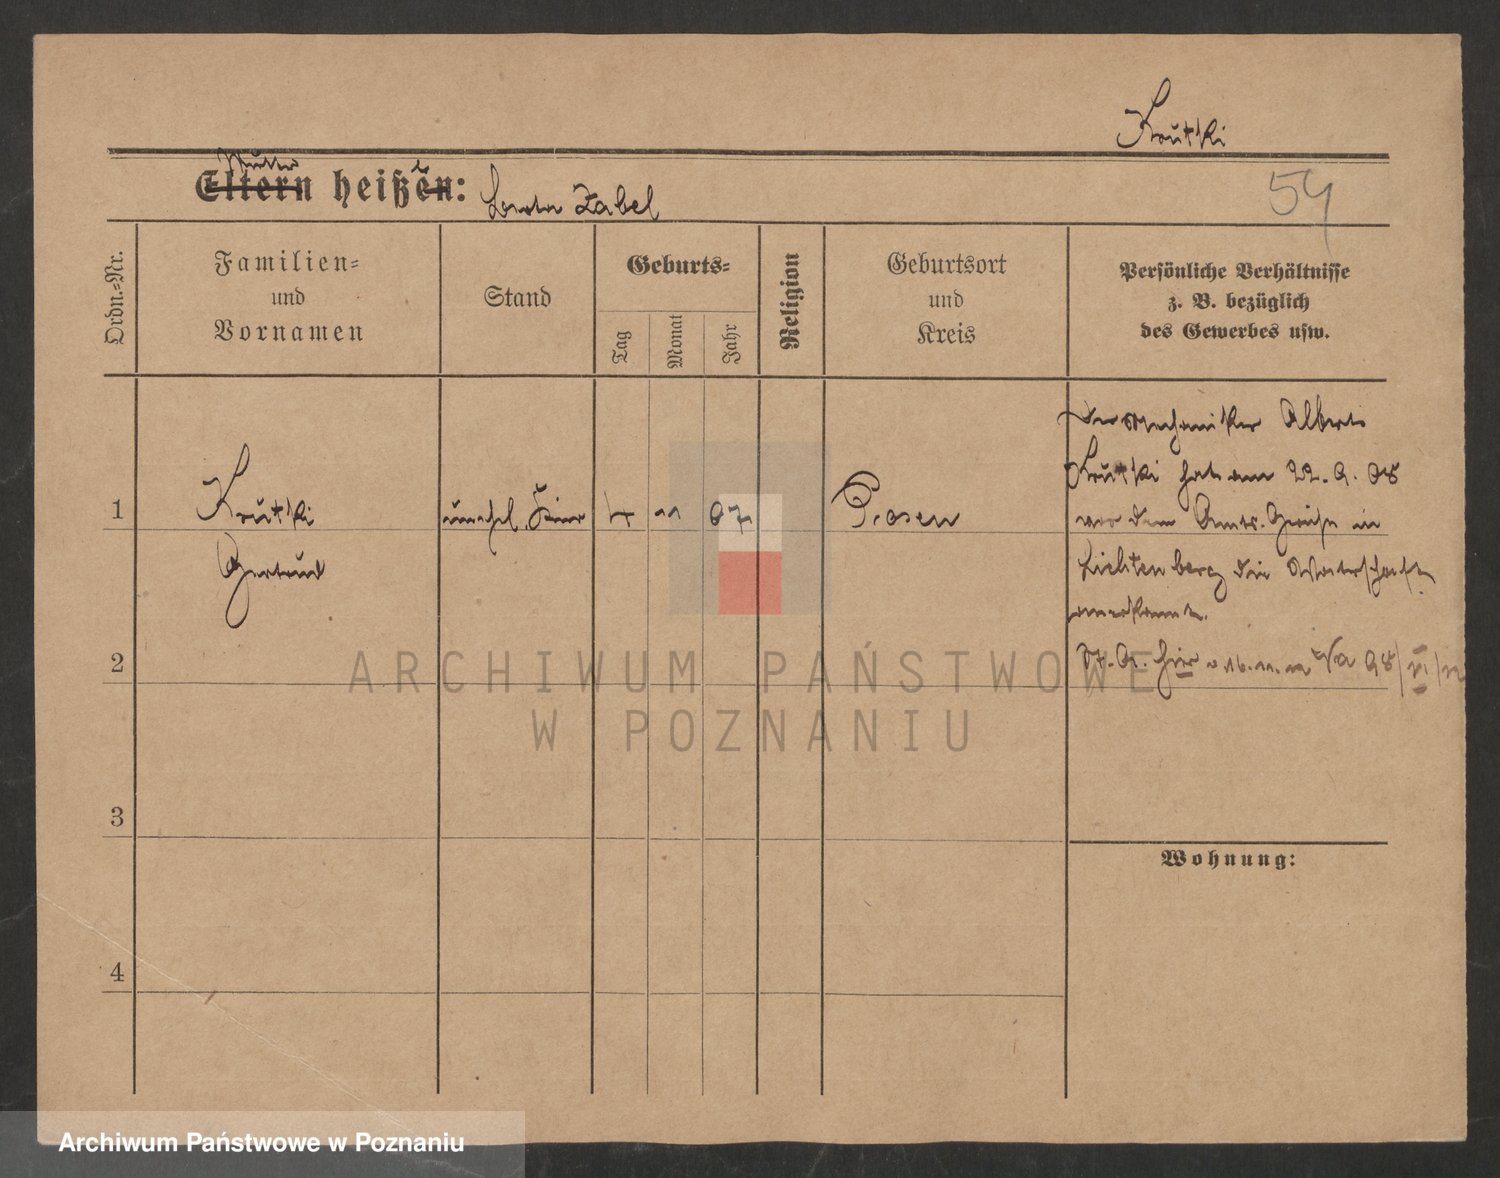 Krutki
Mutter
Eltern heißen:
Zabel
54
Ordn.-Nr.
Familien-
und
Vornamen
Stand
Geburts-
Tag
Monat
Jahr
Religion
Geburtsort
und
Kreis
Persönliche Verhältnisse
z. B. bezüglich
des Gewerbes usw.
Der Mechaniker Albert
Krutki hat am 22. 9. 08
1 Krutki unehel. Kind 4 11 07 Posen
vor dem Amts-Gericht in
Gertrud
Lichtenberg die Vaterschaft
anerkannt.
2
St. A. hier v. 16. 11. 98
3
Wohnung:
4
ARCHIWUM PAŃSTWOWE
W POZNANIU
Archiwum Państwowe w Poznaniu